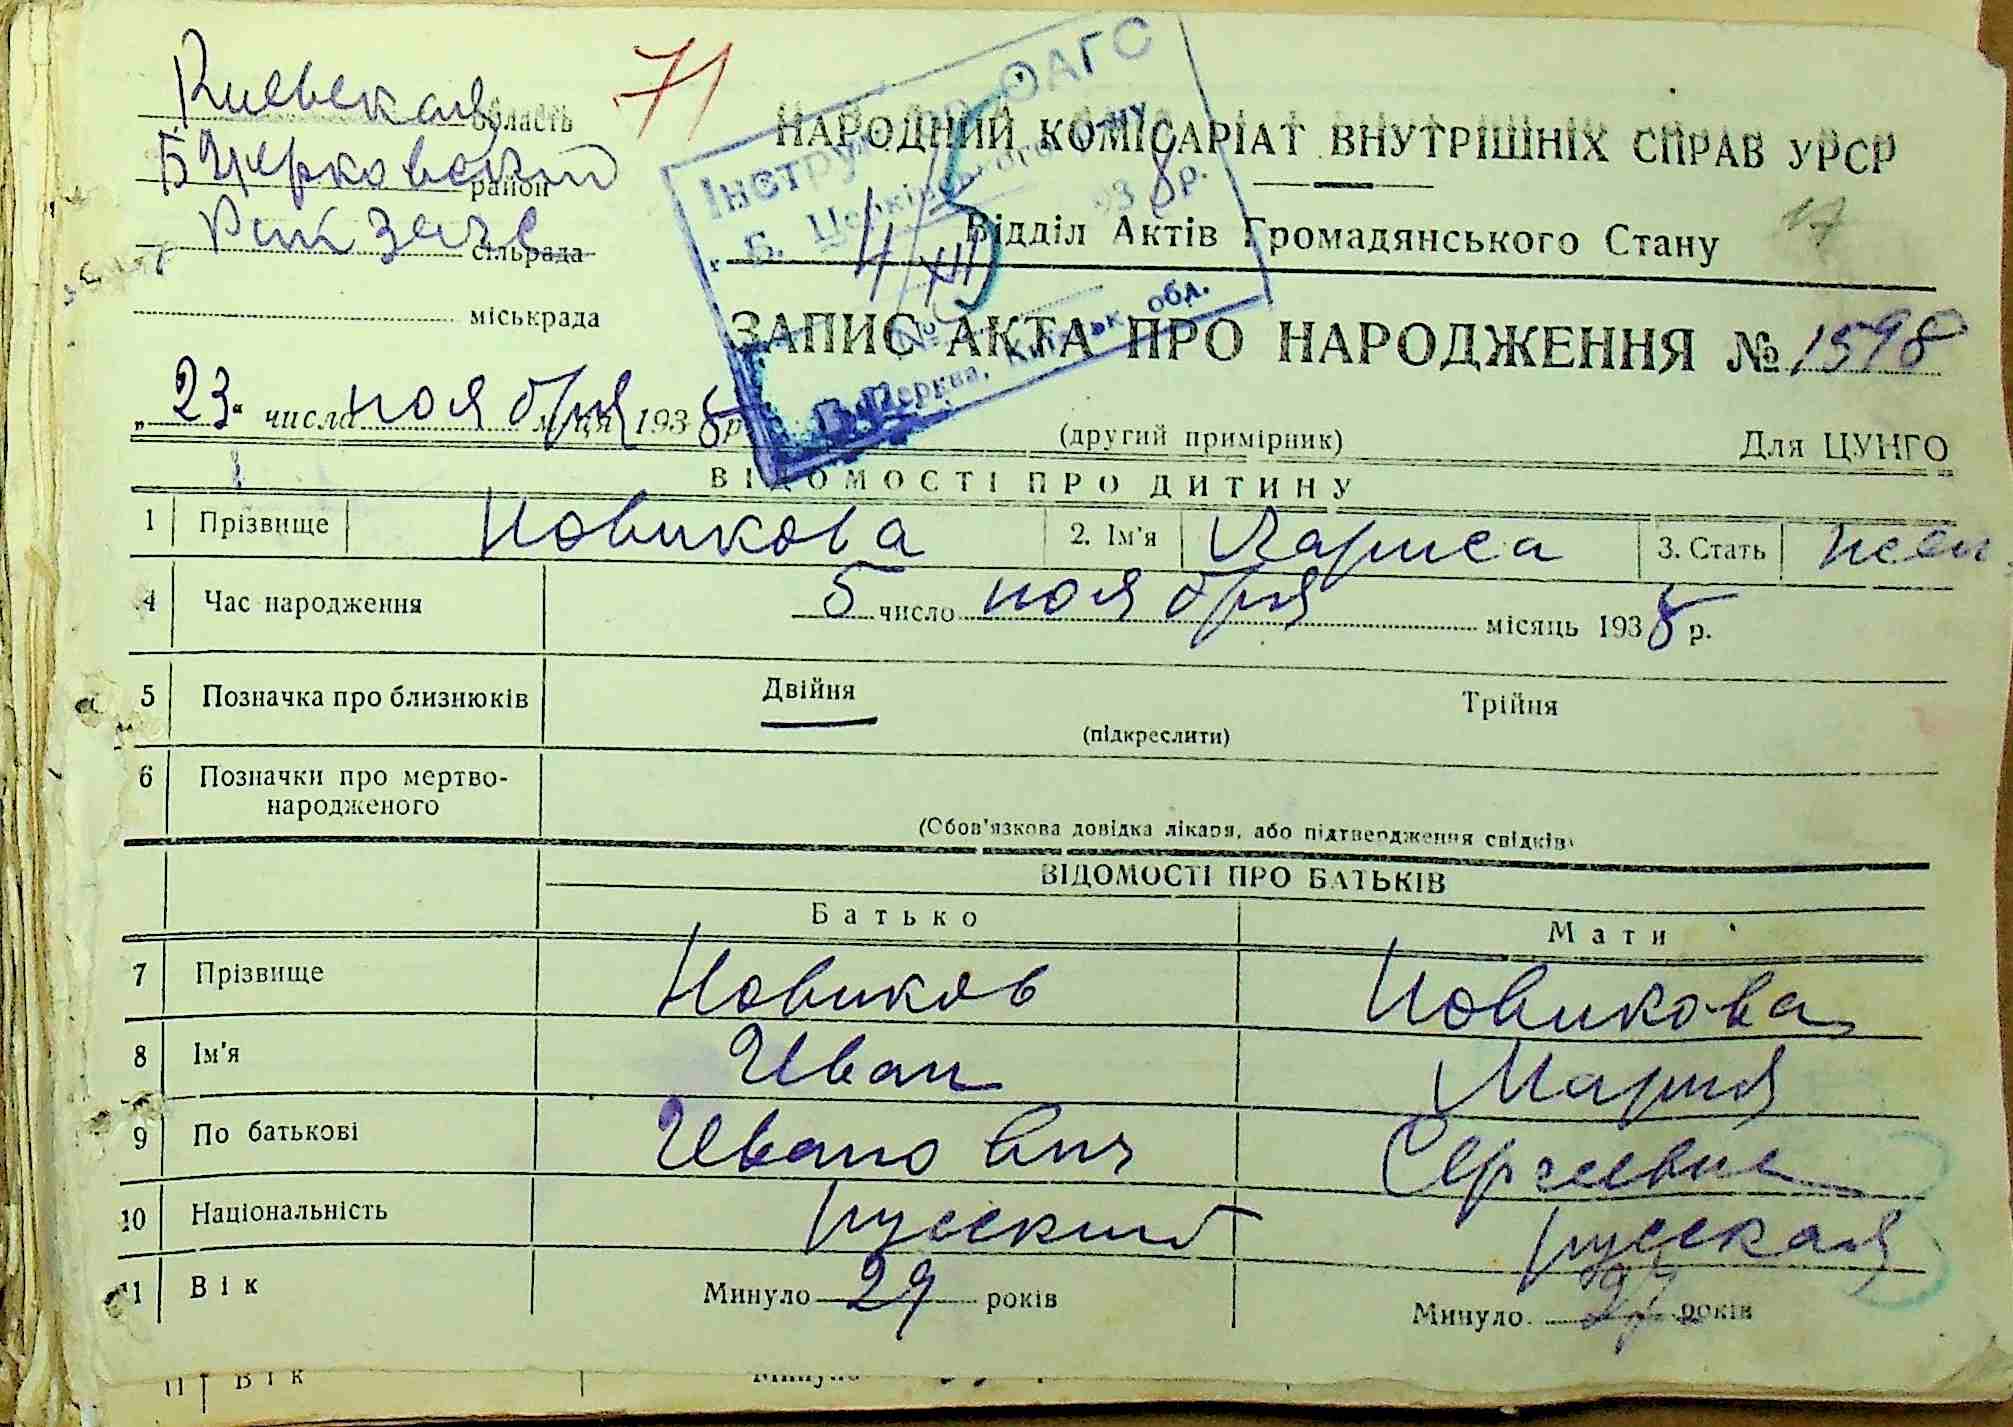 Киевская область
71
Б Церковский район
сільрада
міськрада
Інстру ОАГС
Б. Церківського
193 8 р.
4/XII
№
Церква, Київськ. обл.
НАРОДНИЙ КОМІСАРІАТ ВНУТРІШНІХ СПРАВ УРСР
Відділ Актів Громадянського Стану
17
ЗАПИС АКТА ПРО НАРОДЖЕННЯ № 1598
„23“ числа ноября м-ця 1938 р.
(другий примірник)
Для ЦУНГО
ВІДОМОСТІ ПРО ДИТИНУ
1 Прізвище Новикова 2. Ім'я Лариса 3. Стать жен
4 Час народження 5 число ноября місяць 1938 р.
5 Позначка про близнюків Двійня Трійня
(підкреслити)
6 Позначки про мертво-
народженого
(Обов'язкова довідка лікаря, або підтвердження свідків)
ВІДОМОСТІ ПРО БАТЬКІВ
Батько Мати
7 Прізвище Новиков Новикова
8 Ім'я Иван Мария
9 По батькові Иванович Сергеевна
10 Національність русский русская
11 Вік Минуло 29 років Минуло 27 років
11 Вік Минуло